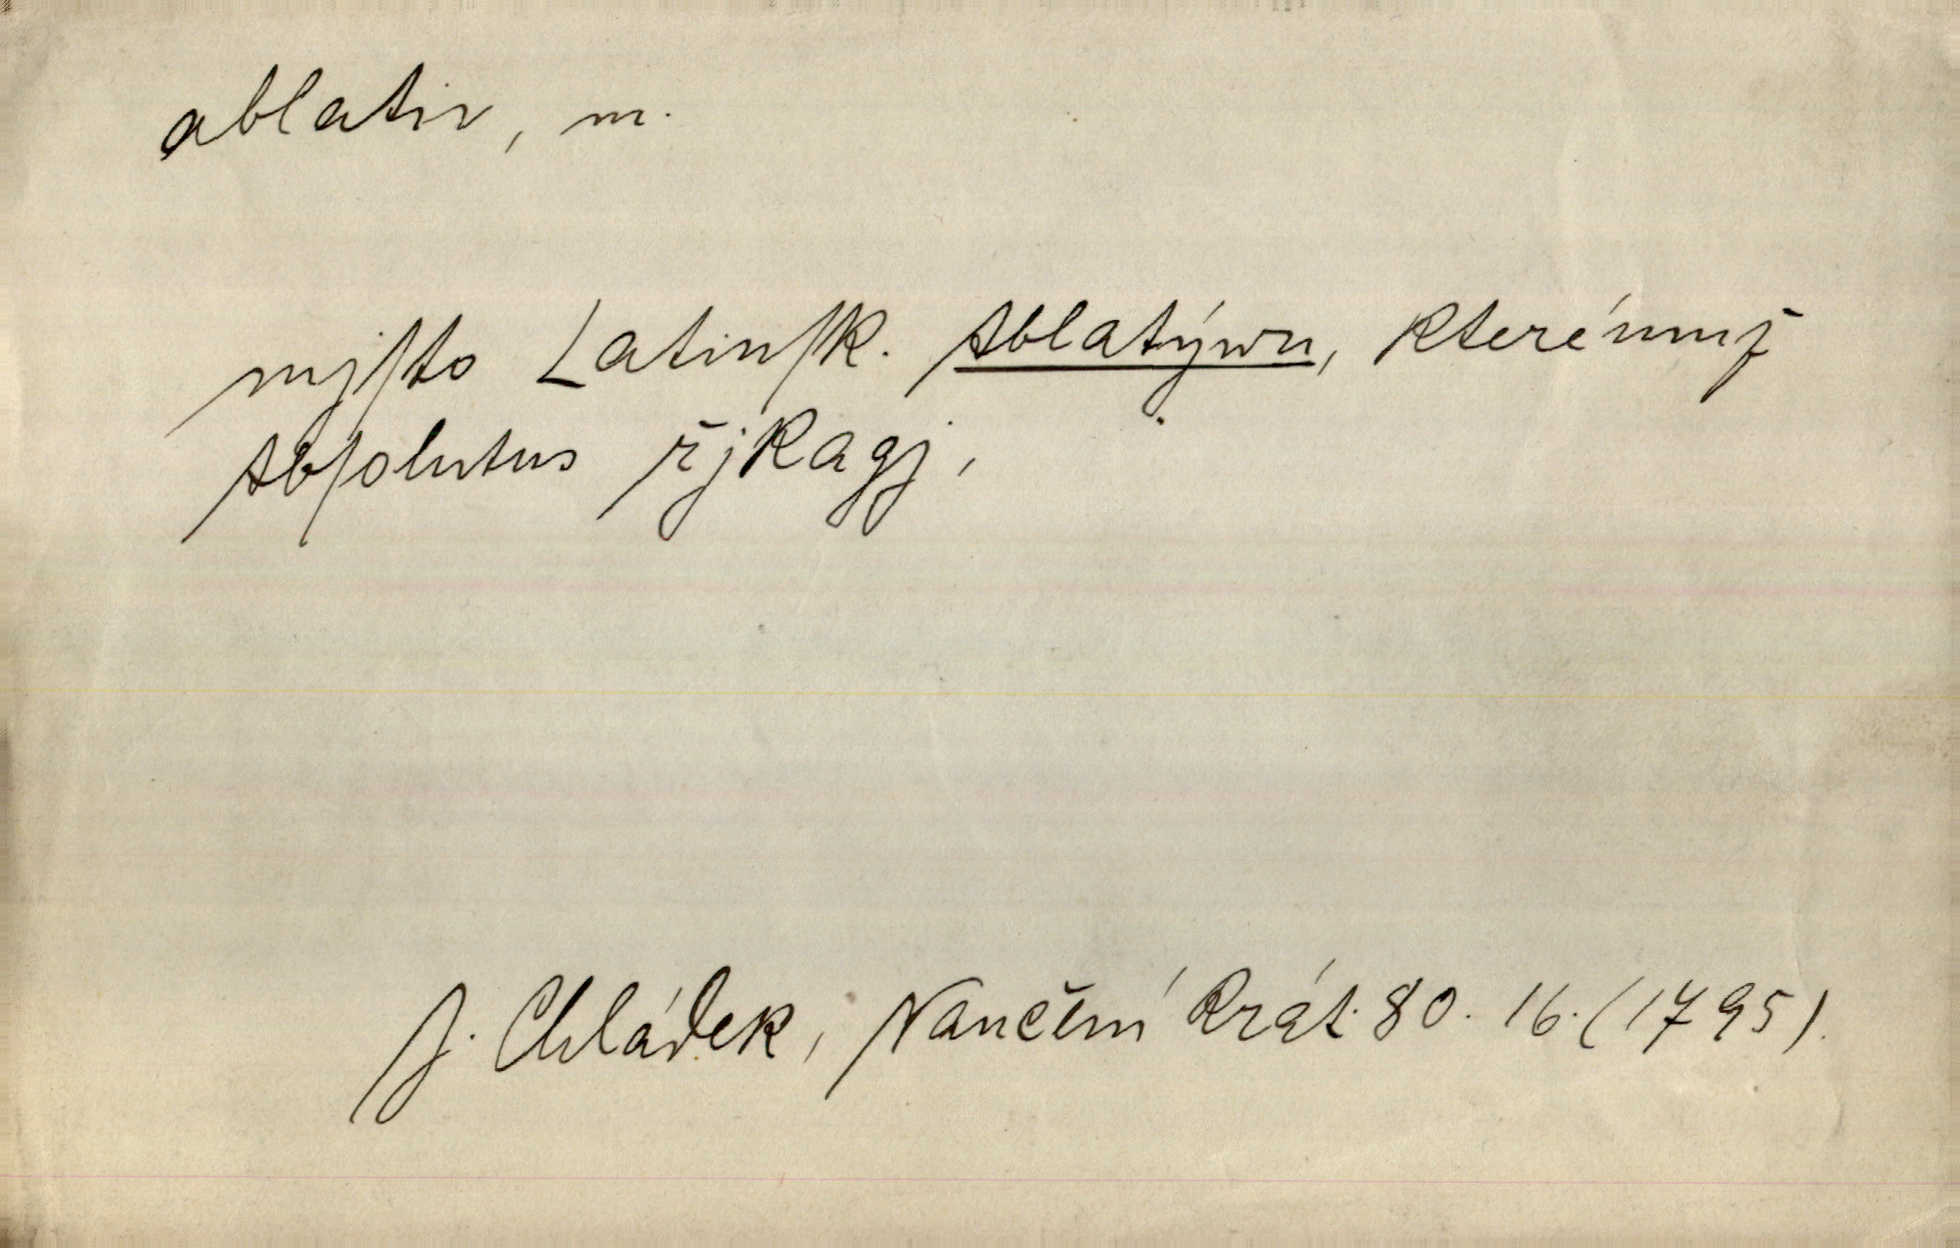 ablativ, m.
mjſto Latinſk. Ablatýwu, kterémuž
Abſolutus řjkagj,
J. Chládek, Naučení krát. 80. 16. (1795).